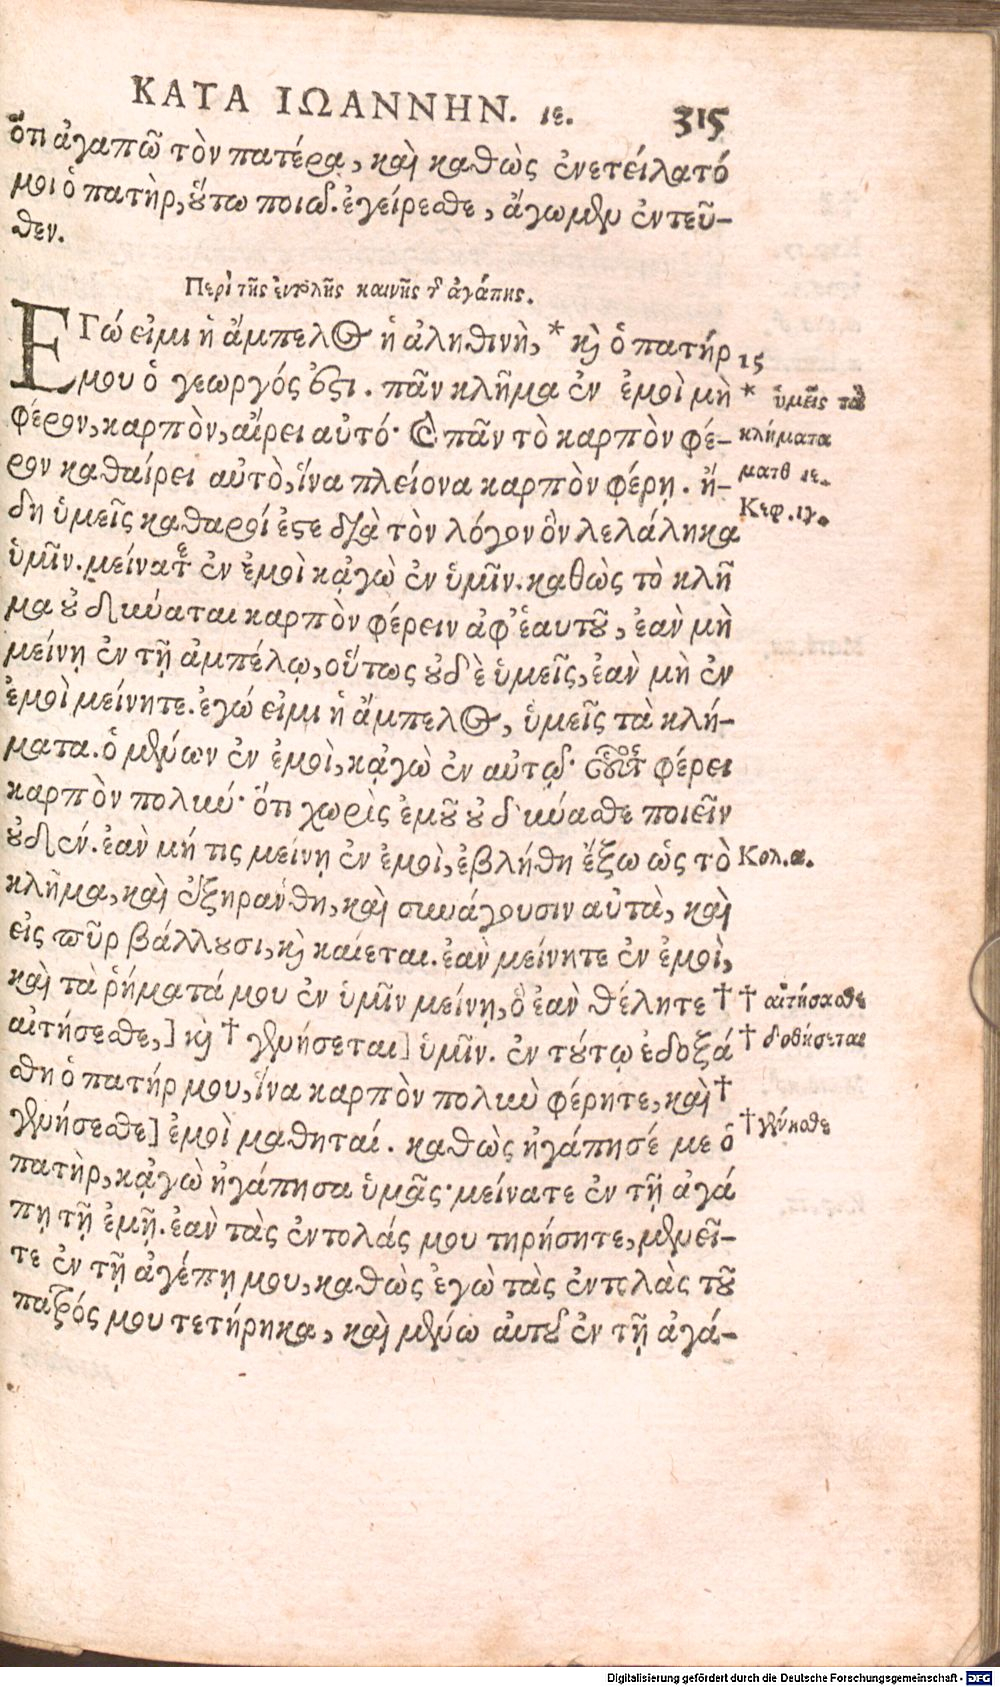 ΚΑΤΑ ΙΩΑΝΝΗΝ. ιε. 315
ὅτι ἀγαπῶ τὸν πατέρα, καὶ καθὼς ἐνετείλατό
μοι ὁ πατὴρ, οὕτω ποιῶ. ἐγείρεσθε, ἄγωμεν ἐντεῦ-
θεν.
Περὶ τῆς ἐντολῆς καινῆς τ ἀγάπης.
ΕΓώ εἰμι ἡ ἄμπελος ἡ ἀληθινὴ, * καὶ ὁ πατήρ 15
μου ὁ γεωργός ἐστι. πᾶν κλῆμα ἐν ἐμοὶ μὴ * ὑμεῖς τὰ
φέρον, καρπὸν, αἴρει αὐτό· καὶ πᾶν τὸ καρπὸν φέ- κλήματα
ρον καθαίρει αὐτὸ, ἵνα πλείονα καρπὸν φέρῃ. ἤ- ματθ ιε.
δη ὑμεῖς καθαροί ἐστε διὰ τὸν λόγον ὃν λελάληκα Κεφ. ιγ.
ὑμῖν. μείνατε ἐν ἐμοὶ κἀγὼ ἐν ὑμῖν. καθὼς τὸ κλῆ
μα οὐ δύναται καρπὸν φέρειν ἀφ' ἑαυτοῦ, ἐὰν μὴ
μείνῃ ἐν τῇ ἀμπέλῳ, οὕτως οὐδὲ ὑμεῖς, ἐὰν μὴ ἐν
ἐμοὶ μείνητε. ἐγώ εἰμι ἡ ἄμπελος, ὑμεῖς τὰ κλή-
ματα. ὁ μένων ἐν ἐμοὶ, κἀγὼ ἐν αὐτῷ· οὗτος φέρει
καρπὸν πολύν· ὅτι χωρὶς ἐμοῦ οὐ δύνασθε ποιεῖν
οὐδέν. ἐὰν μή τις μείνῃ ἐν ἐμοὶ, ἐβλήθη ἔξω ὡς τὸ Κολ. α.
κλῆμα, καὶ ἐξηράνθη, καὶ συνάγουσιν αὐτὰ, καὶ
εἰς πῦρ βάλλουσι, καὶ καίεται. ἐὰν μείνητε ἐν ἐμοὶ,
καὶ τὰ ῥήματά μου ἐν ὑμῖν μείνῃ, ὃ ἐὰν θέλητε † † αἰτήσασθε
αἰτήσεσθε,] καὶ † γενήσεται] ὑμῖν. ἐν τούτῳ ἐδοξά † δοθήσεται
θη ὁ πατήρ μου, ἵνα καρπὸν πολὺν φέρητε, καὶ †
γενήσεσθε] ἐμοὶ μαθηταί. καθὼς ἠγάπησέ με ὁ † γένησθε
πατὴρ, κἀγὼ ἠγάπησα ὑμᾶς· μείνατε ἐν τῇ ἀγά
πῃ τῇ ἐμῇ. ἐὰν τὰς ἐντολάς μου τηρήσητε, μενεῖ-
τε ἐν τῇ ἀγέπῃ μου, καθὼς ἐγὼ τὰς ἐντολὰς τοῦ
πατρός μου τετήρηκα, καὶ μένω αὐτοῦ ἐν τῇ ἀγά-
Digitalisierung gefördert durch die Deutsche Forschungsgemeinschaft - DFG